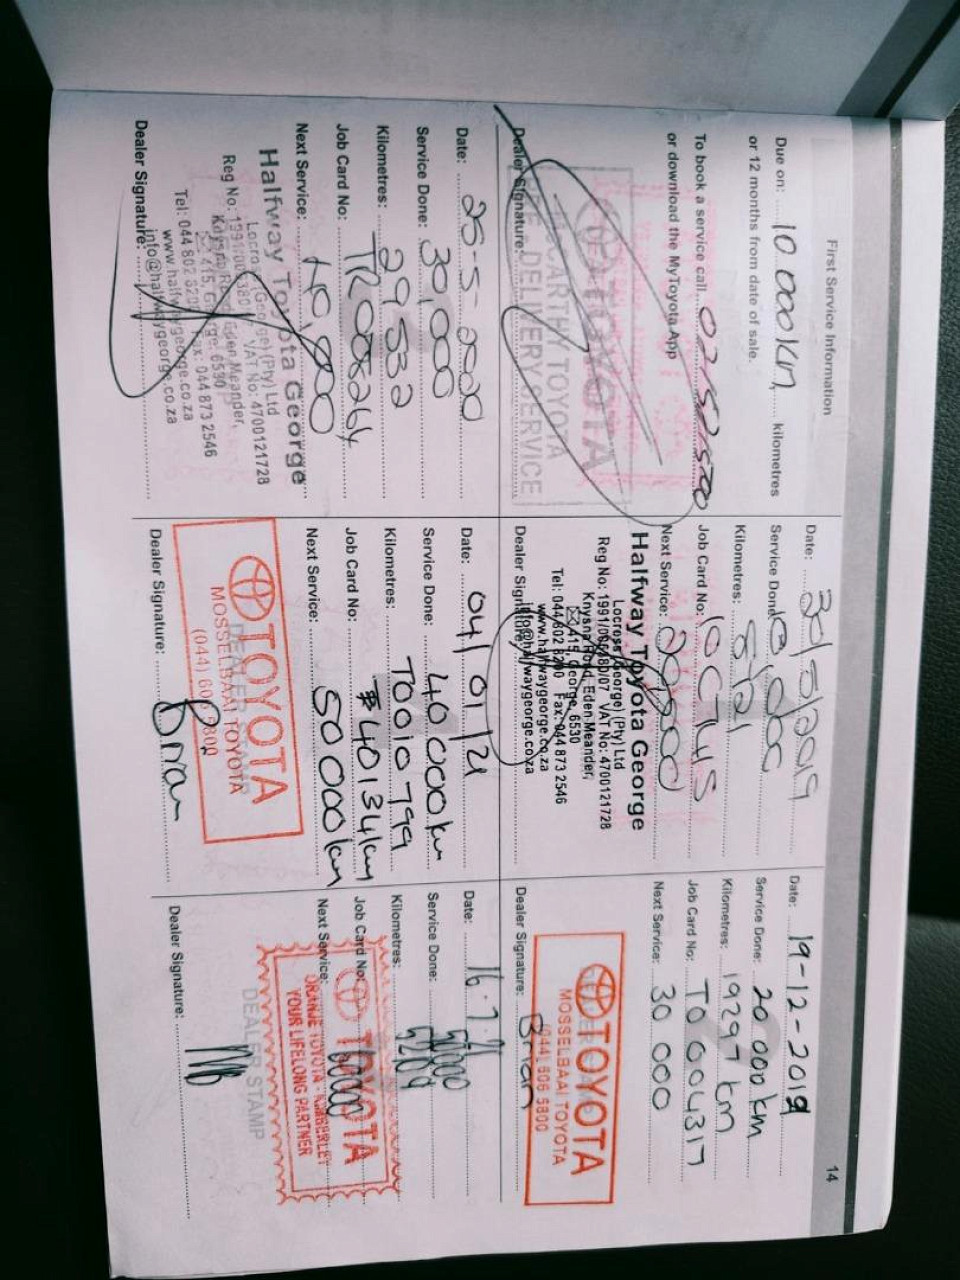 First Service Information
14
Due on: 10 000Km kilometres
or 12 months from date of sale.
To book a service call
or download the MyToyota App
McCARTHY TOYOTA
PRE DELIVERY SERVICE
Dealer Signature:
Date: 30/5/2019
Service Done: 10,000
Kilometres: 8121
Job Card No:
Next Service: 20,000
Halfway Toyota George
Locross (George) (Pty) Ltd
VAT No: 4700121728
Knysna Road, Eden Meander,
415, George, 6530
Tel: 044 802 8200 Fax: 044 873 2546
www.halfwaygeorge.co.za
info@halfwaygeorge.co.za
Dealer Signature:
Date: 19-12-2019
Service Done: 20 000 km
Kilometres: 19297 km
Job Card No: TO 004317
Next Service: 30 000
TOYOTA
MOSSELBAAI TOYOTA
(044) 606 5800
Dealer Signature: Brian
Date: 25-5-2020
Service Done: 30,000
Kilometres: 29532
Job Card No:
Next Service: 40,000
Halfway Toyota George
Locross (George) (Pty) Ltd
VAT No: 4700121728
Knysna Road, Eden Meander,
415, George, 6530
Tel: 044 802 8200 Fax: 044 873 2546
www.halfwaygeorge.co.za
info@halfwaygeorge.co.za
Dealer Signature:
Date: 04/01/21
Service Done: 40 000km
Kilometres: T0010799
Job Card No: 40134km
Next Service: 50 000km
TOYOTA
DEALER STAMP
MOSSELBAAI TOYOTA
(044) 606 5800
Dealer Signature: Brian
Date: 16.7.21
Service Done:
Kilometres:
Job Card No:
Next Service:
TOYOTA
ORANJE TOYOTA - KIMBERLEY
YOUR LIFELONG PARTNER
DEALER STAMP
Dealer Signature: